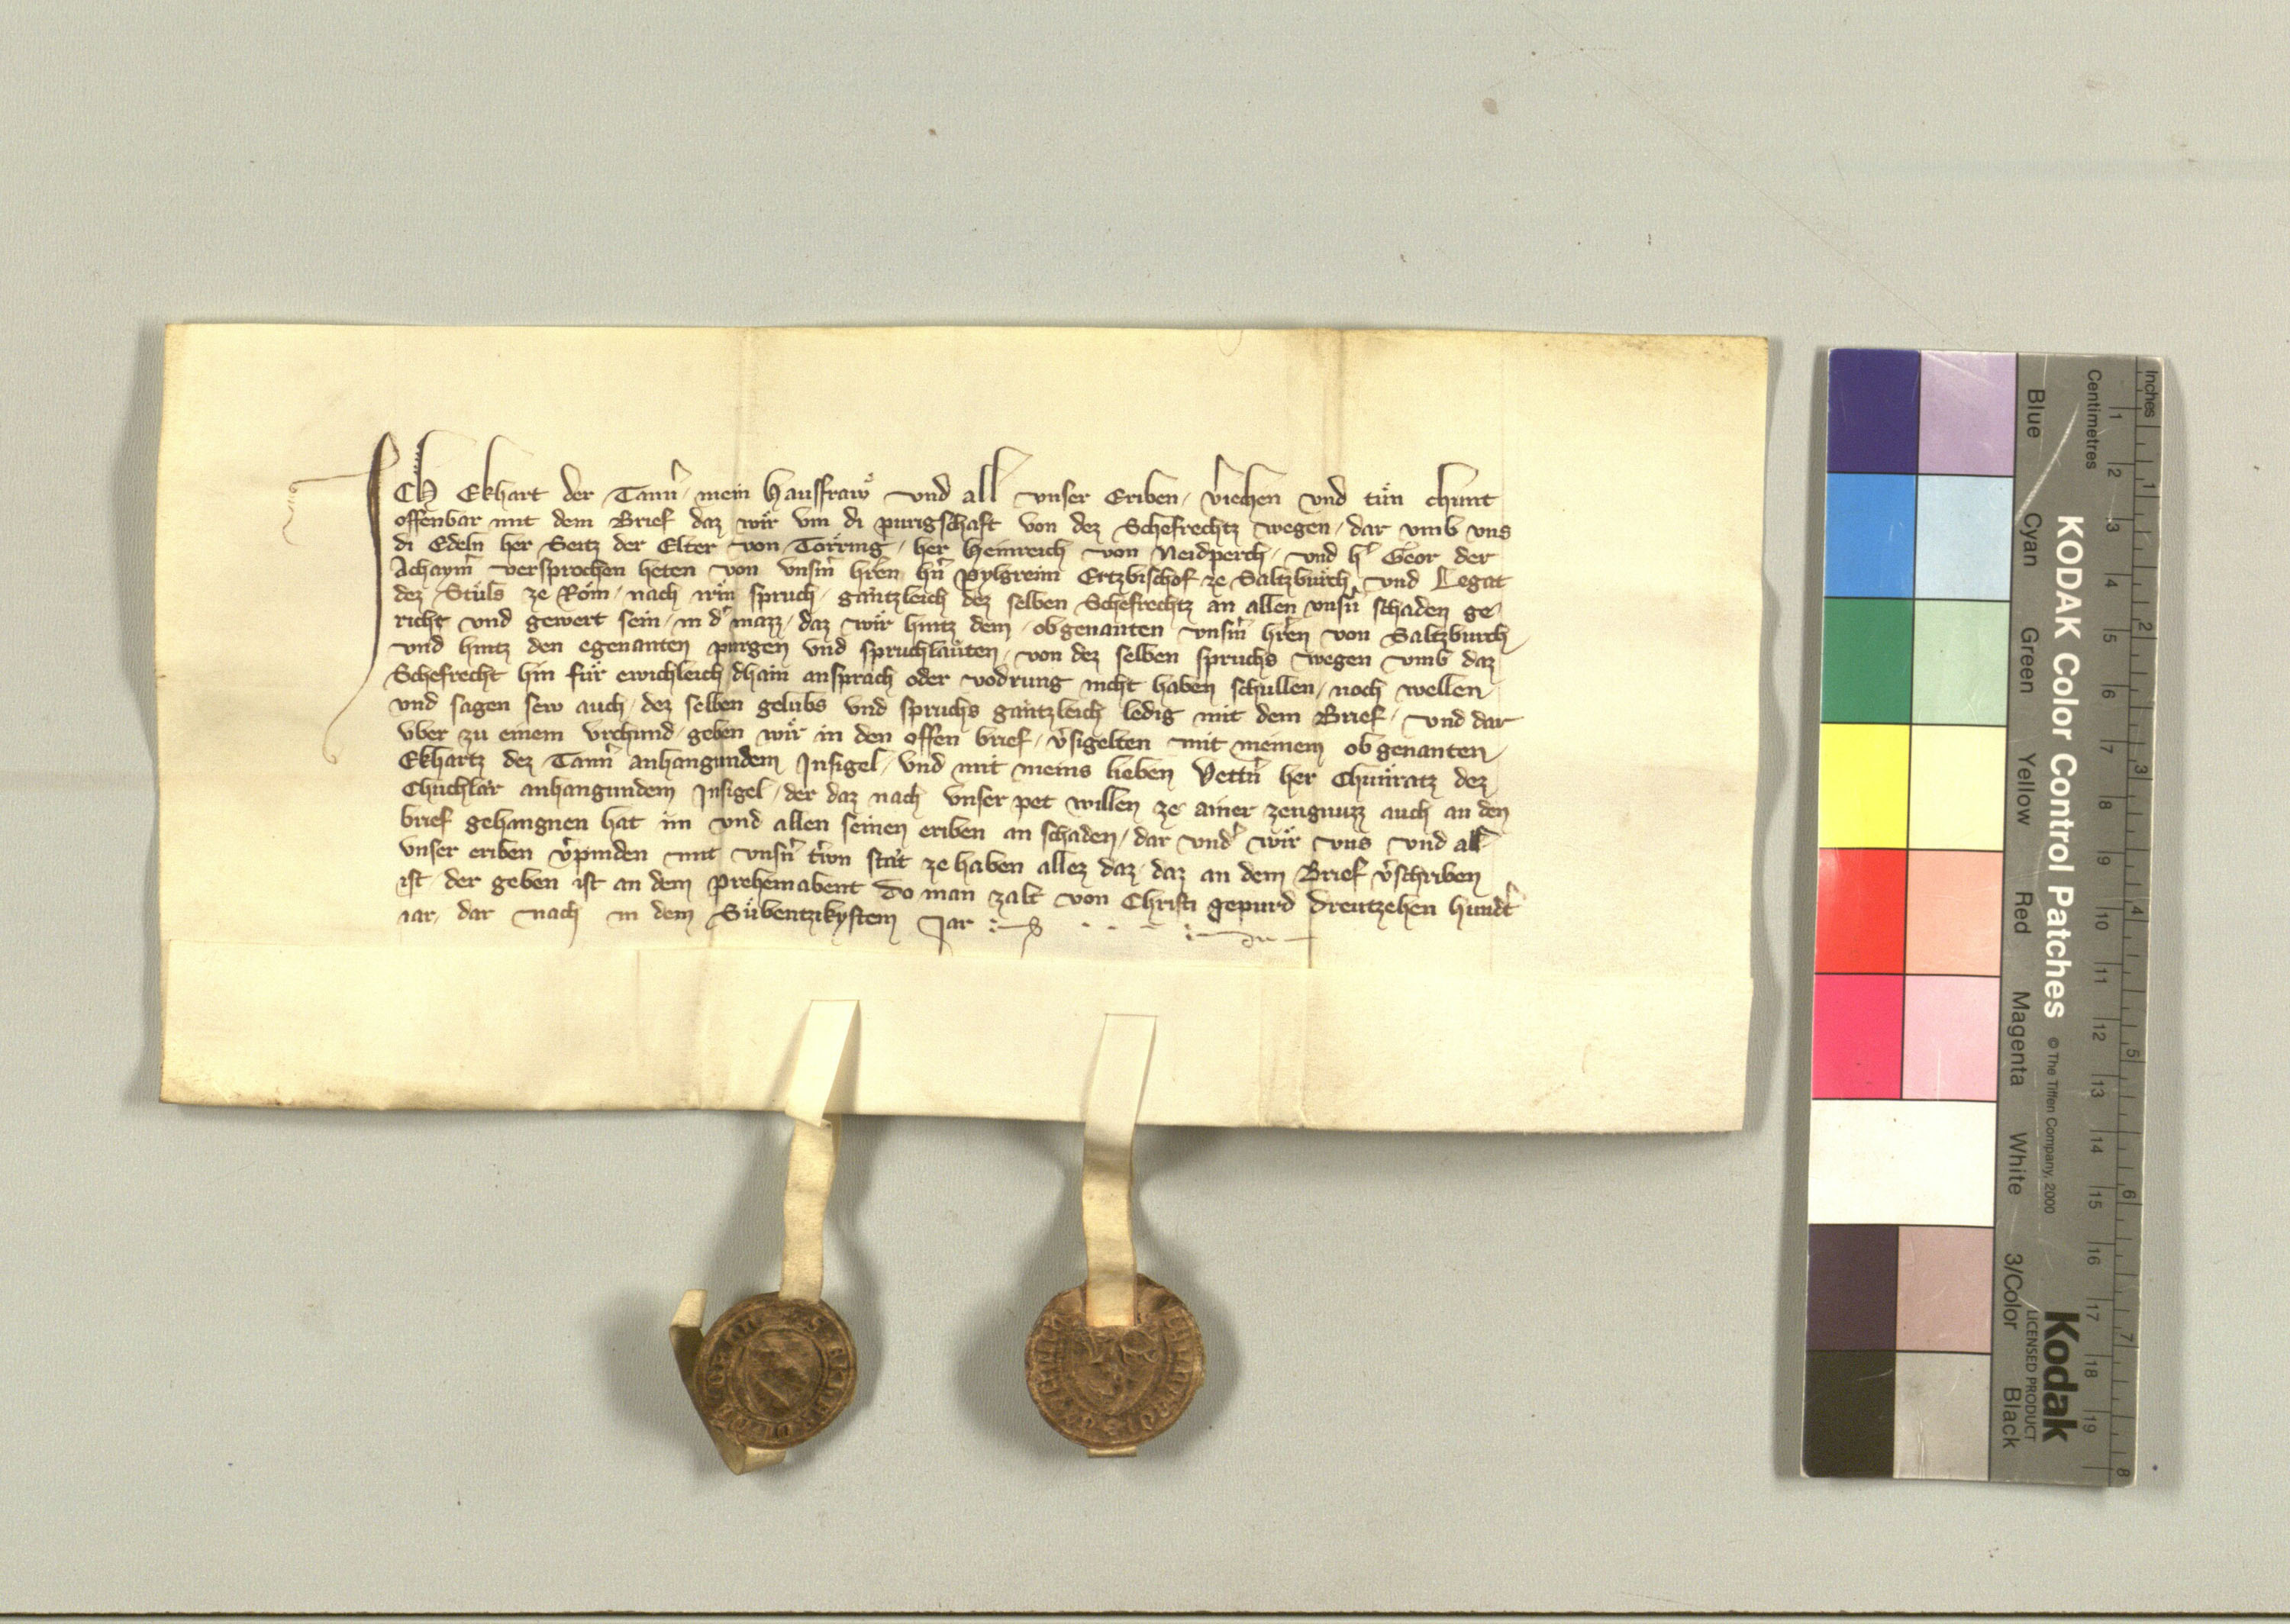 ICH Ekhart der Tann̄ mein Hausfraw̆ vnd all vnser Eriben v̄iehen vnd tůn chunt
offenbar mit dem Brief daz wir̊ vm di purigschaft von dez Schefrechtz wegen dar vmb vns
di Edeln her Seitz der Elter von Torring her Heinreich von Neidperch vnd h̄ Geor der
Achaym̄ versprochen heten von vnsm̄ hren hn̄ Pylgreim Ertzbischof ze Saltzburch vnd Legat
dez Stůls ze Rom nach irm̄ spruch gantzleich dez selben Schefrechtz an allen vnsn̄ schaden ge
richt vnd gewert sein in d̄ mazz daz wir̊ hintz dem obgenanten vnsm̄ hren von Saltzburch
vnd hintz den egenanten purgen vnd spruchlauten von dez selben spruchs wegen vmb daz
Schefrecht hin fůr ewichleich dhain ansprach oder vodrung nicht haben schullen noch wellen
vnd sagen sew auch dez selben gelubs vnd spruchs gantzleich ledig mit dem Brief vnd dar
vber zu einem vrchund geben wir̊ in den offen brief v̄sigelten mit meinem obgenanten
Ekhartz dez Tann̄ anhangundem Insigel vnd mit meins lieben Vettn̄ her Chunratz dez
Chuchlar anhangundem Insigel der daz nach vnser pet willen ze ainer zeugnuzz auch an den
brief gehangnen hat im vnd allen seinen eriben an schaden dar vnd̄ wir̊ vns vnd all
vnser eriben v̄pinden mit vnsn̄ triwn stat ze haben allez daz daz an dem Brief v̄schriben
ist der geben ist an dem Prehemabent do man zalt von Christi gepurd dreutzehen hundt̄
iar dar nach in dem Sůbentzikystem Jar
KODAK Color Control Patches © The Tiffen Company, 2000
Kodak
LICENSED PRODUCT
Inches 1 2 3 4 5 6 7 8
Centimetres 1 2 3 4 5 6 7 8 9 10 11 12 13 14 15 16 17 18 19
Blue Cyan Green Yellow Red Magenta White 3/Color Black